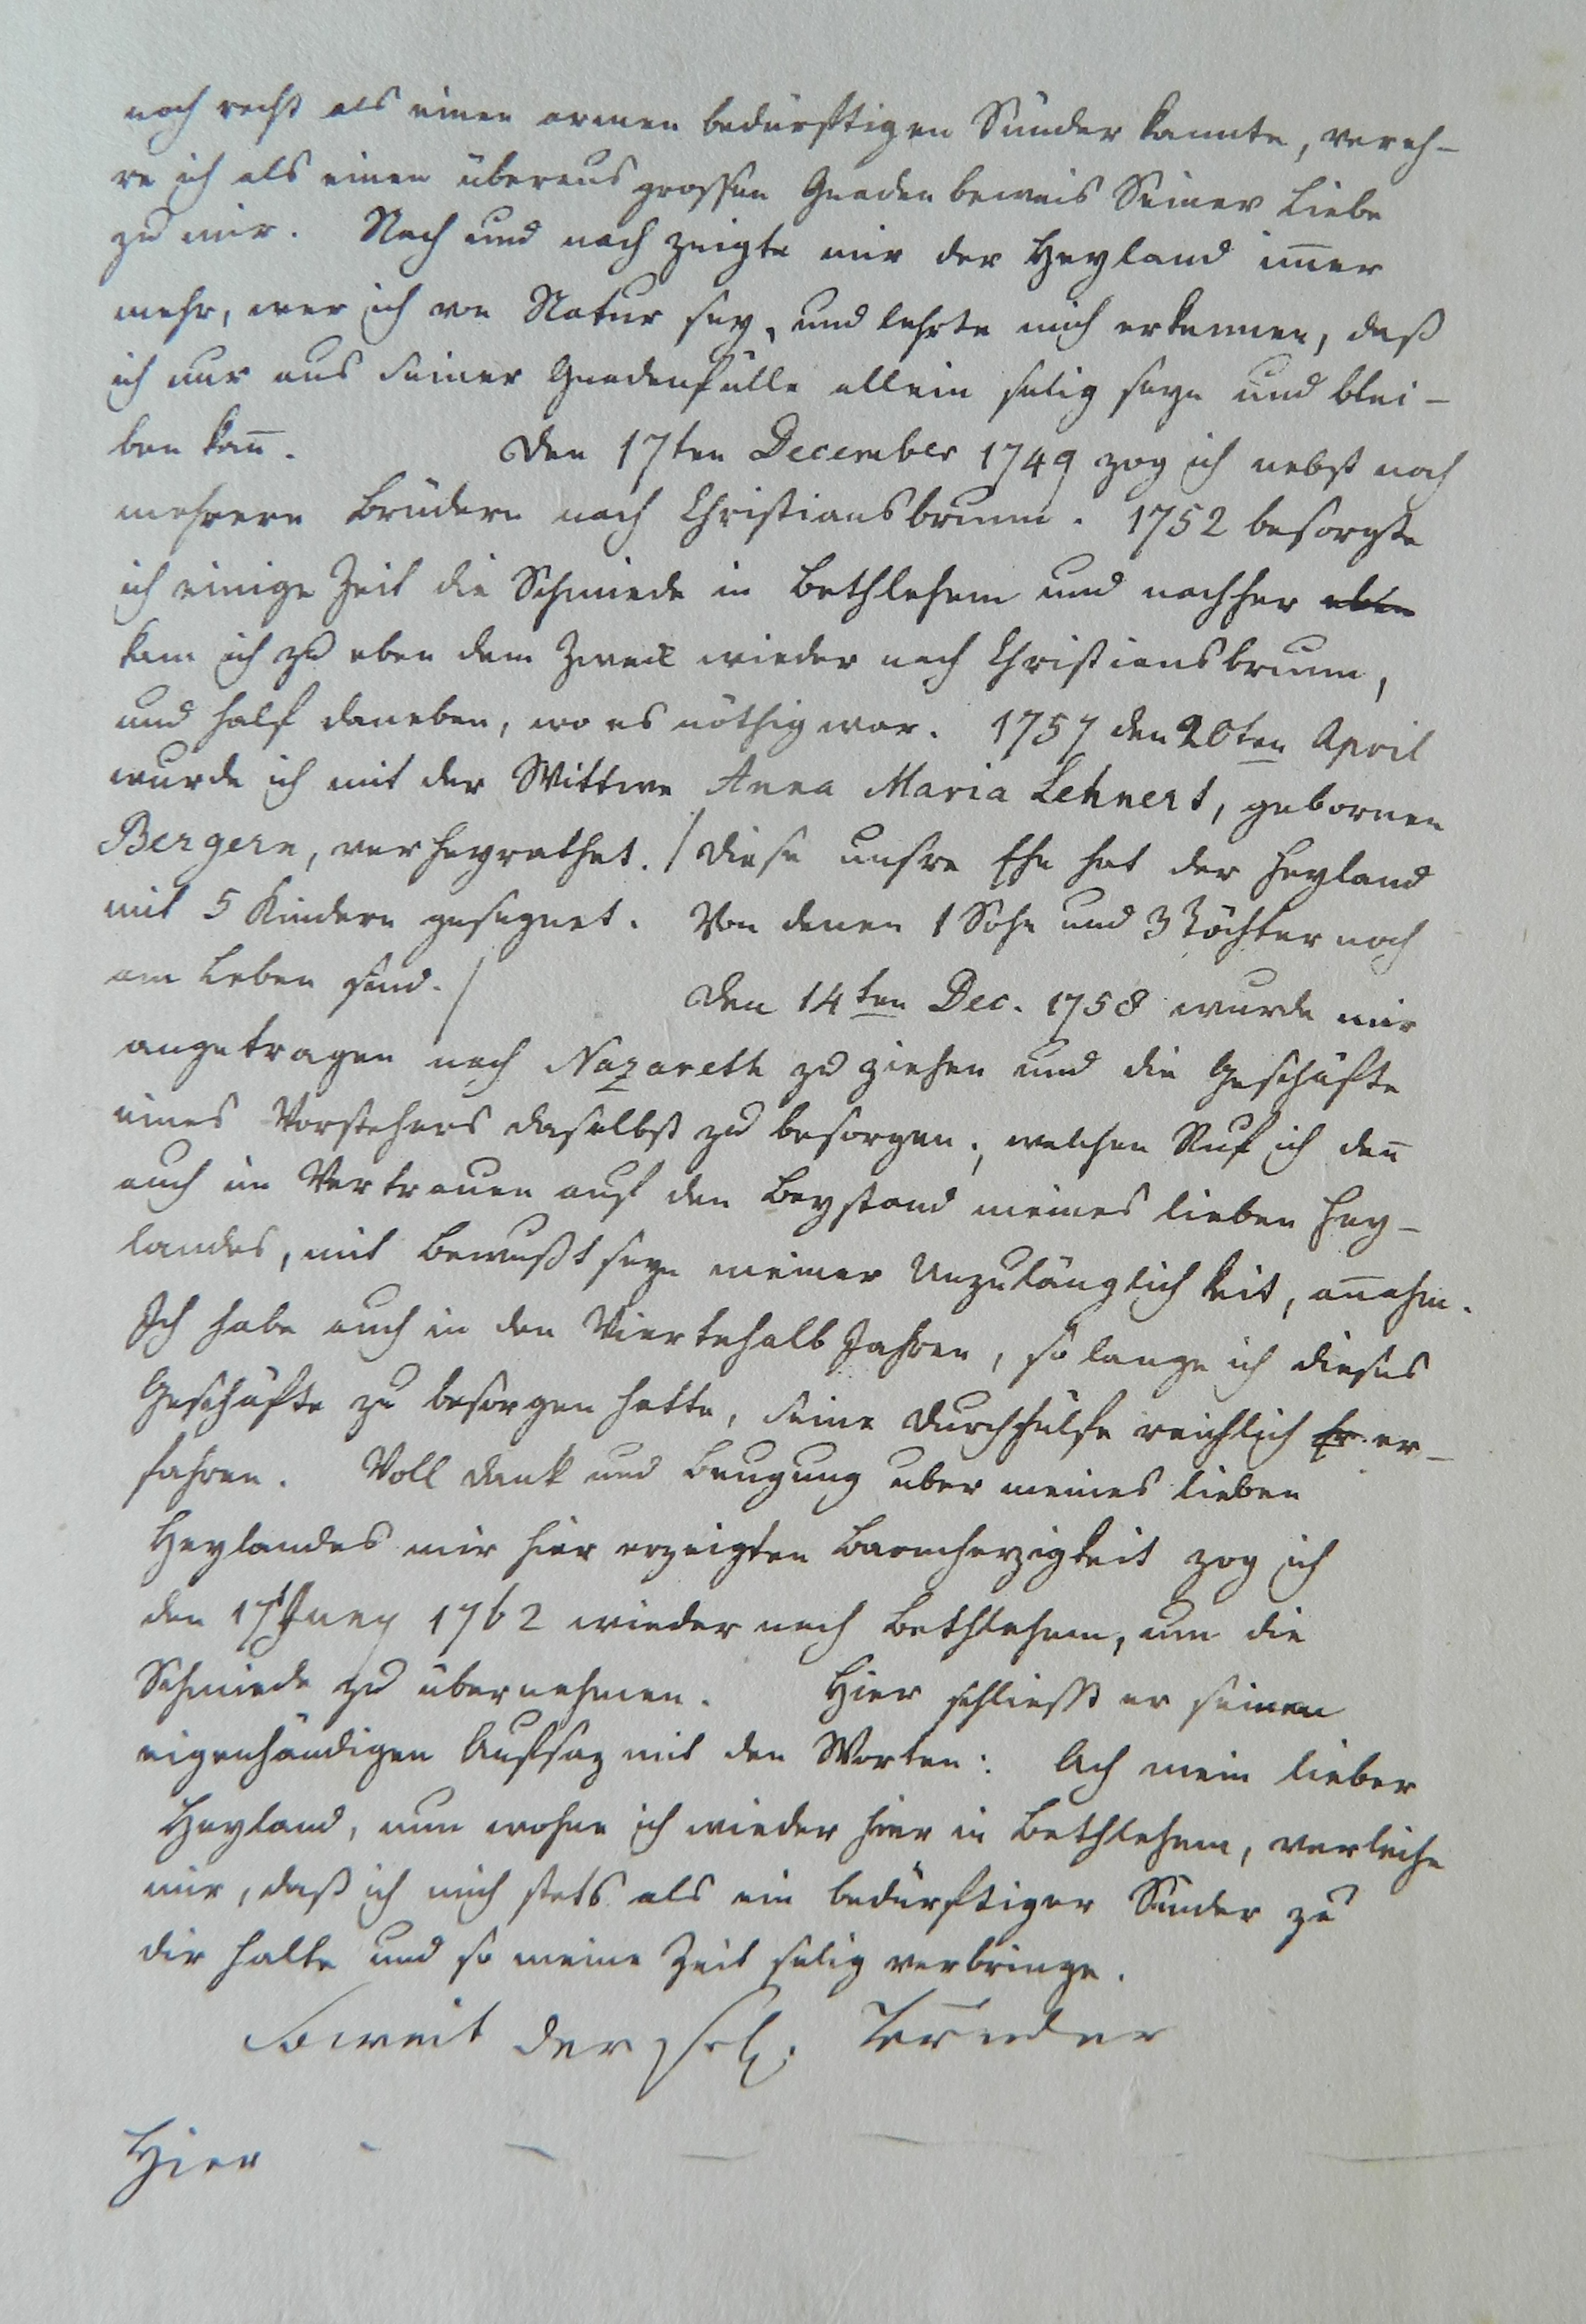 noch recht als einen armen bedürftigen Sünder kannte, vereh-
re ich als einen überaus grossen Gnadenbeweis Seiner Liebe
zu mir. Nach und nach zeigte mir der Heyland im̅er
mehr, wer ich von Natur sey, und lehrte mich erkennen, daß
ich nur aus seiner Gnadenfülle allein selig seyn und blei-
ben kan̅. Den 17ten December 1749 zog ich nebst noch
mehrern Brüdern nach Christiansbrunn. 1752 besorgte
ich einige Zeit die Schmiede in Bethlehem und nachher eben
kam ich zu eben dem Zweck wieder nach Christiansbrunn,
und half daneben, wo es nöthig war. 1757 den 20ten April
wurde ich mit der Wittwe Anna Maria Lehnert, gebornen
Bergern, verheyrathet. / Diese unsre Ehe hat der Heyland
mit 5 Kindern gesegnet. Von denen 1 Sohn und 3 Töchter noch
am Leben sind. / Den 14ten Dec. 1758 wurde mir
angetragen nach Nazareth zu ziehen und die Geschäfte
eines Vorstehers daselbst zu besorgen; welchen Ruf ich den̅
auch im Vertrauen auf den Beystand meines lieben Hey-
landes, mit Bewußtseyn meiner Unzulänglichkeit, an̅ahm.
Ich habe auch in den Viertehalb Jahren, so lange ich dieses
Geschäfte zu besorgen hatte, seine Durchhülfe reichlich Er er-
fahren. Voll Dank und Beugung über meines lieben
Heylandes mir hier erzeigten Barmherzigkeit zog ich
den 17t Juny 1762 wieder nach Bethlehem, um die
Schmiede zu übernehmen. Hier schliesst er seinen
eigenhändigen Aufsaz mit den Worten: Ach mein lieber
Heyland, nun wohne ich wieder hier in Bethlehem, verleihe
mir, daß ich mich stets als ein bedürftiger Sünder zu
dir halte und so meine Zeit selig verbringe.
Soweit der sel. Bruder
Hier - - -